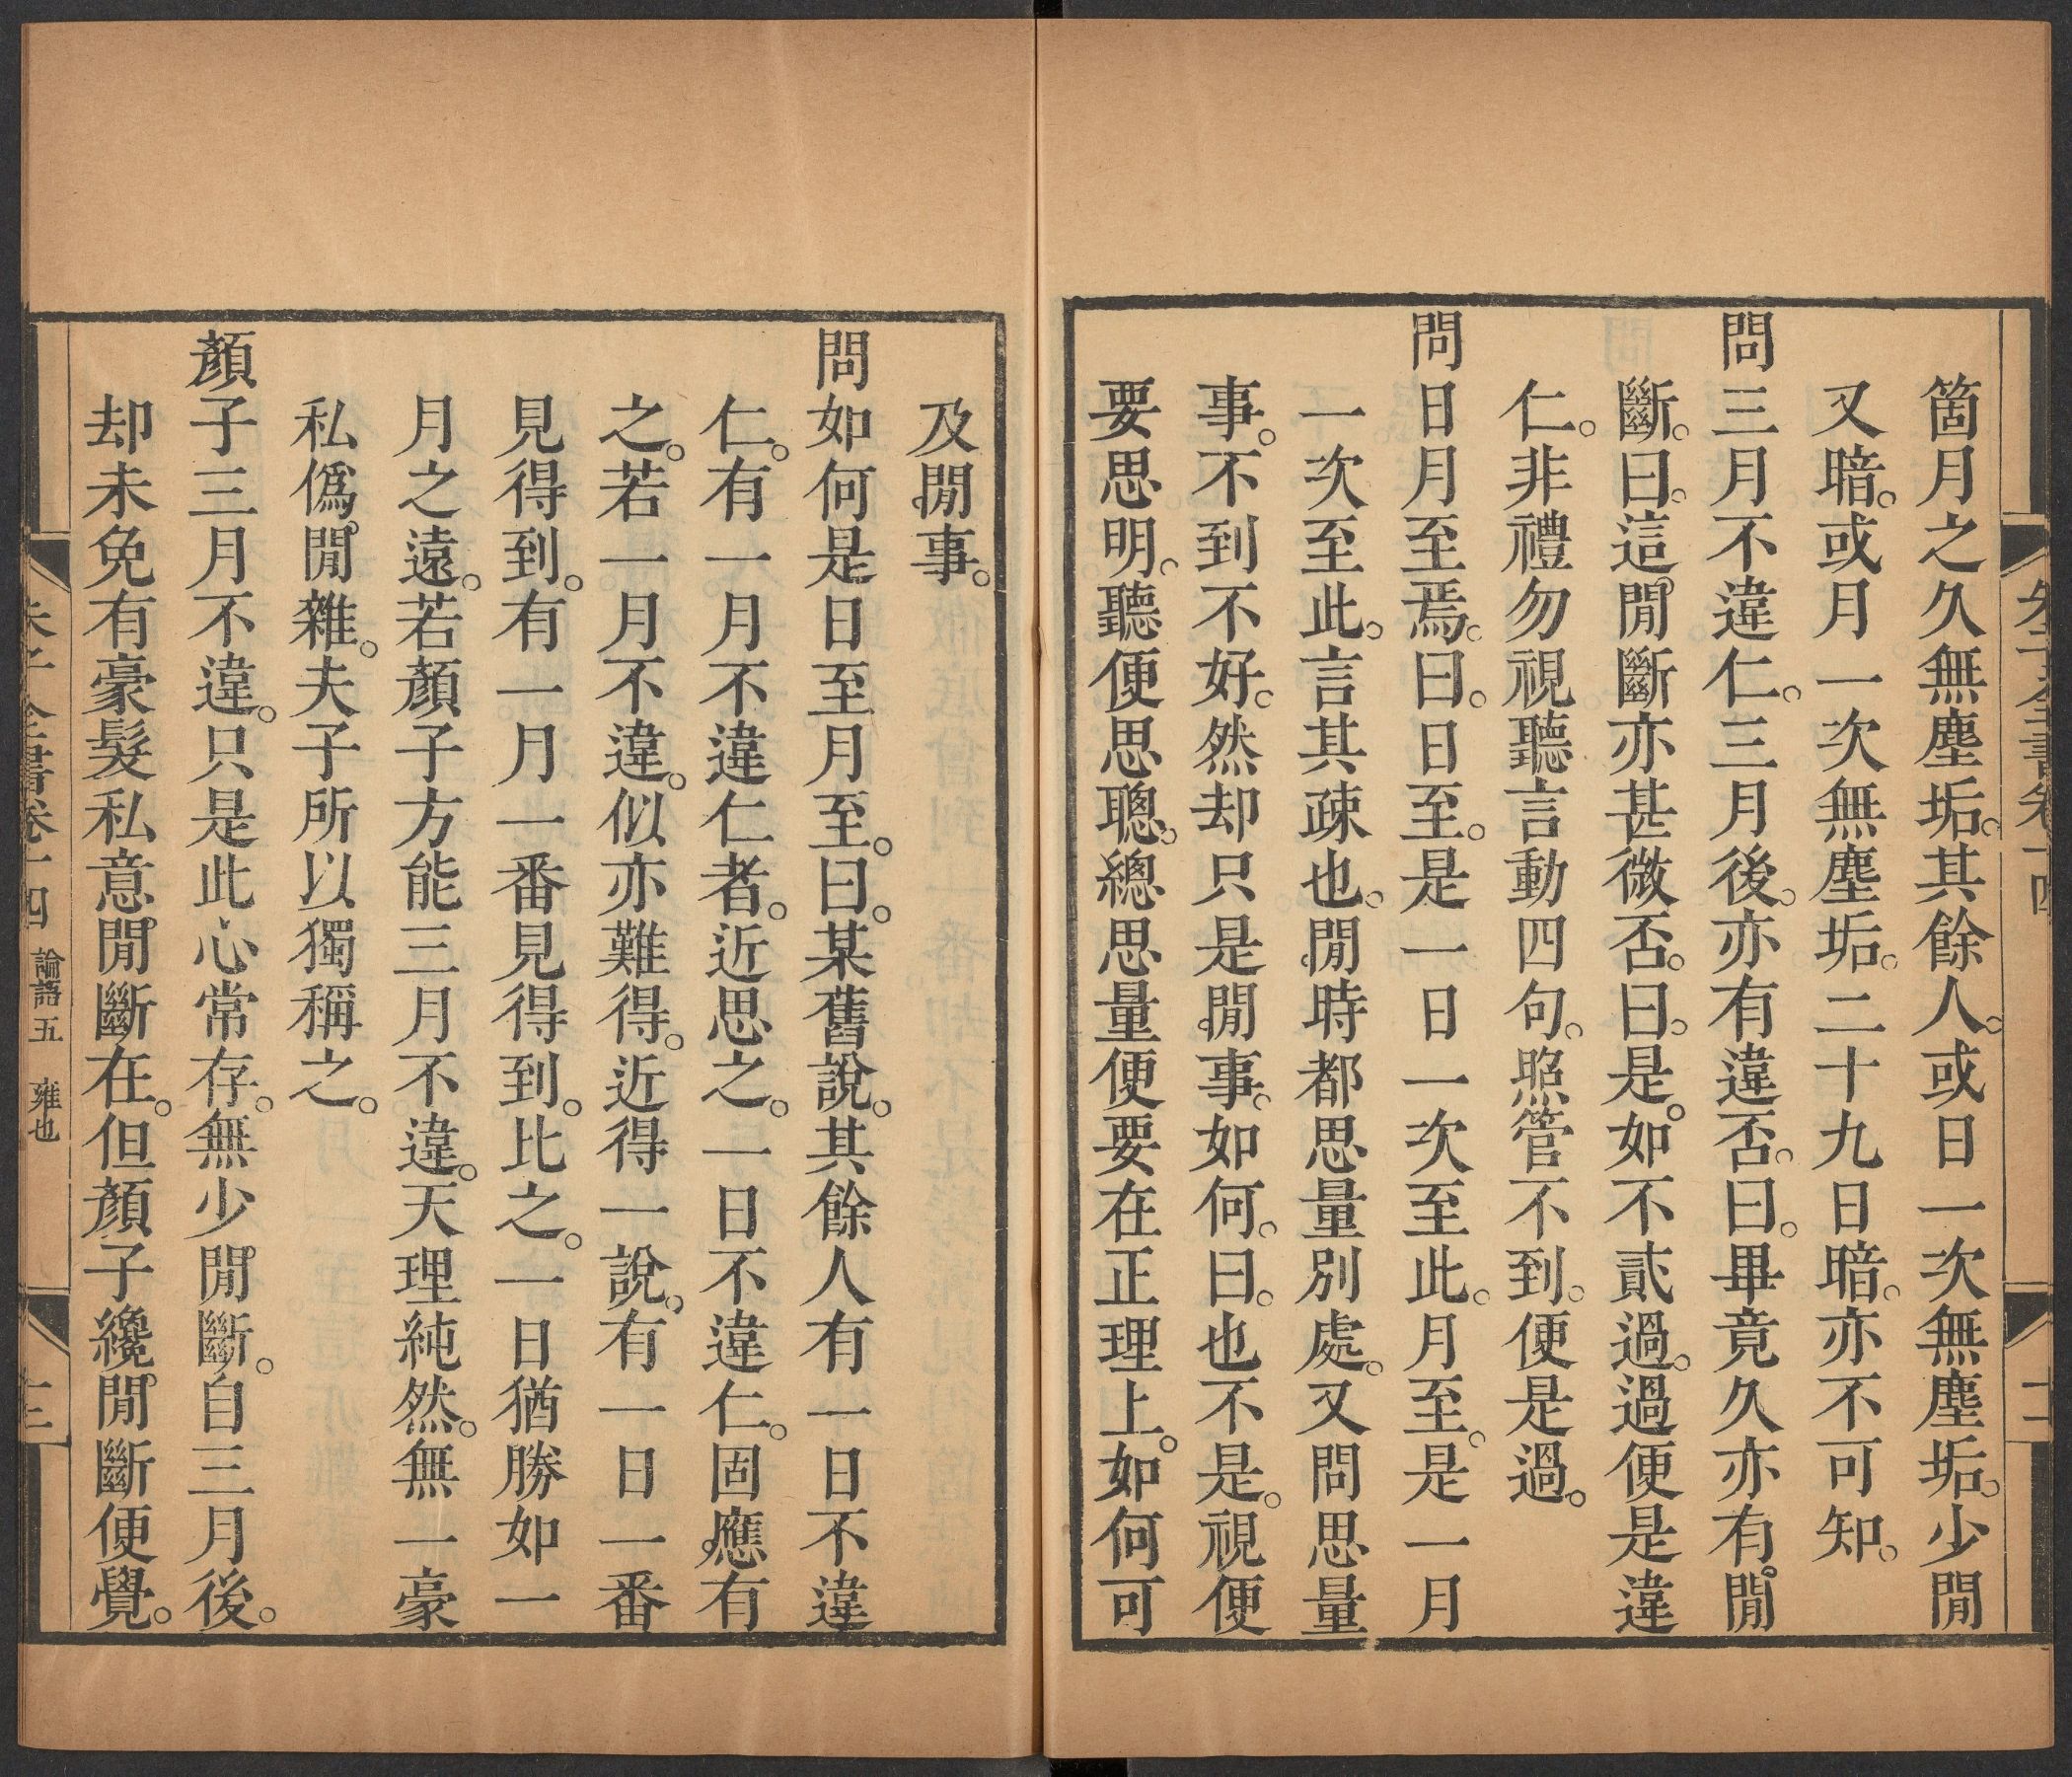 箇月之久無塵垢。其餘人。或日一次無塵垢。少閒
又暗。或月一次無塵垢。二十九日暗。亦不可知。
問三月不違仁。三月後。亦有違否。曰。畢竟久亦有閒
斷。曰。這閒斷亦甚微否。曰。是。如不貳過。過便是違
仁。非禮勿視聽言動四句。照管不到。便是過。
問日月至焉。曰。日至。是一日一次至此。月至。是一月
一次至此。言其疎也。閒時都思量別處。又問思量
事。不到不好。然却只是閒事。如何。曰。也不是。視便
要思明。聽便思聰。總思量便要在正理上。如何可
及閒事。
問如何是日至月至。曰。某舊說。其餘人有一日不違
仁。有一月不違仁者。近思之。一日不違仁。固應有
之。若一月不違。似亦難得。近得一說。有一日一番
見得到。有一月一番見得到。比之。一日猶勝如一
月之遠。若顏子方能三月不違。天理純然。無一豪
私僞閒雜。夫子所以獨稱之。
顏子三月不違。只是此心常存。無少閒斷。自三月後。
却未免有豪髮私意閒斷在。但顏子纔閒斷便覺。
朱子全書卷十四 論語五 雍也 十三